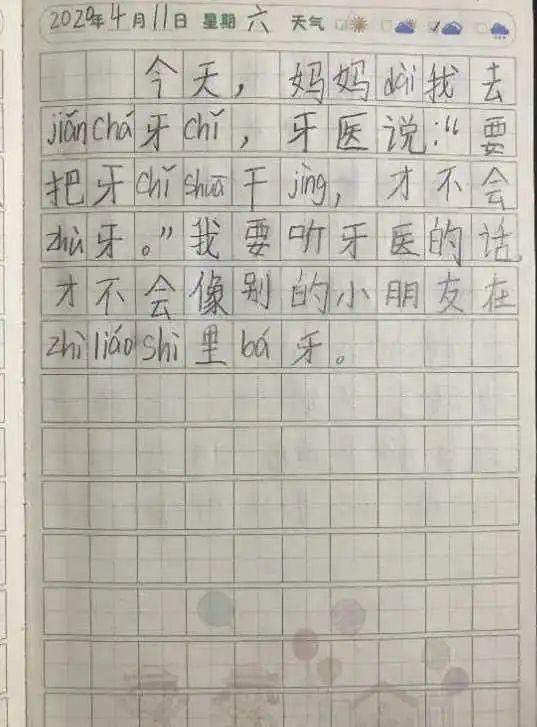 2020年4月11日 星期 六 天气
今天，妈妈dài我去
jiǎnchá牙chǐ，牙医说：“要
把牙chǐshuā干jìng，才不会
zhù牙。”我要听牙医的话
才不会像别的小朋友在
zhìliáoshì里bá牙。